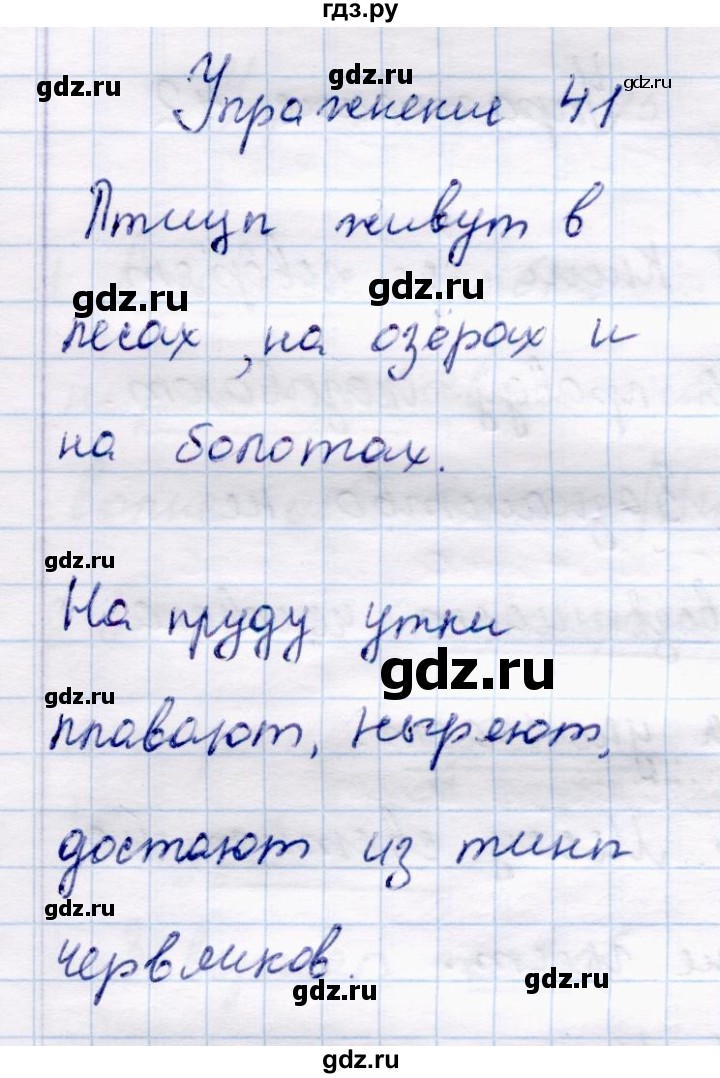 гдз.ру
gdz.ru gdz.ru gdz.ru
Упражнение 41
Птицы живут в
gdz.ru gdz.ru
лесах, на озёрах и
на болотах.
gdz.ru
На пруду утки
gdz.ru gdz.ru
плавают, ныряют,
достают из тины
gdz.ru
червяков.
gdz.ru gdz.ru
gdz.ru